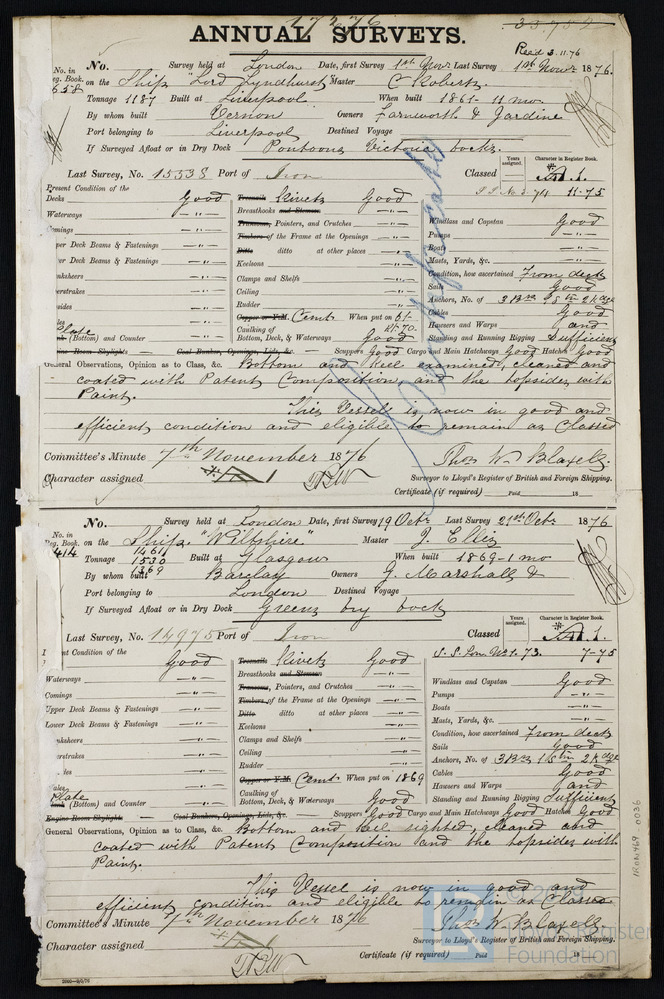 17276
33,752
ANNUAL SURVEYS.
Recd 3.11.76
No. Survey held at London Date, first Survey 1st Novr Last Survey 1st Novr 1876.
No. in
Reg. Book.
658
on the Ship "Lord Lyndhurst" Master C Roberts
Tonnage 1187 Built at Liverpool When built 1861-11 mo.
By whom built Vernon Owners Farnworth & Jardine
Port belonging to Liverpool Destined Voyage
If Surveyed Afloat or in Dry Dock Pontoons Victoria Docks.
Last Survey, No. 15538 Port of Iron Classed
Years assigned.
Character in Register Book.
A.1.
11-75
Present Condition of the
Decks Good
Waterways — " —
Comings — " —
Upper Deck Beams & Fastenings — " —
Lower Deck Beams & Fastenings — " —
Plate
(Bottom) and Counter — " —
Engine Room Skylights —
Treenails Rivets Good
Breasthooks and Stemson — " —
Transoms, Pointers, and Crutches — " —
Timbers of the Frame at the Openings — " —
Ditto ditto at other places — " —
Keelsons — " —
Clamps and Shelfs — " —
Ceiling — " —
Rudder — " —
Copper or Y.M. Cemt. When put on 61-
Caulking of
Bottom, Deck, & Waterways Good
Coal Bunkers, Openings, Lids, &c. — Scuppers Good Cargo and Main Hatchways Good Hatches Good
Windlass and Capstan Good
Pumps — " —
Boats — " —
Masts, Yards, &c. — " —
Condition, how ascertained From deck
Sails Good
Anchors, No. of 3 Brs 1 Sm 2 Kdge
Cables Good
Hawsers and Warps and
Standing and Running Rigging Sufficient
General Observations, Opinion as to Class, &c. Bottom and Keel examined, cleaned and
coated with Patent Composition, and the topsides with
Paint.
This Vessel is now in good and
efficient condition and eligible to remain as Classed
Committee's Minute 7th November 1876
Thos W. Blaxell.
Character assigned
Surveyor to Lloyd's Register of British and Foreign Shipping.
Certificate (if required) Paid 18
No. Survey held at London Date, first Survey 19 Octr Last Survey 21st Octr 1876
No. in
Reg. Book.
414
on the Ship "Wiltshire" Master J. Ellis
1461
Tonnage 1530 Built at Glasgow When built 1869-1 mo
1369
By whom built Barclay Owners J. Marshall &
Port belonging to London Destined Voyage
If Surveyed Afloat or in Dry Dock Greens Dry Dock
Last Survey, No. 14975 Port of Iron Classed
Years assigned.
Character in Register Book.
A.1.
S. S. Lon. No 1. 73. 7-75
Condition of the
Good
Waterways — " —
Comings — " —
Upper Deck Beams & Fastenings — " —
Lower Deck Beams & Fastenings — " —
Plate
(Bottom) and Counter — " —
Engine Room Skylights —
Treenails Rivets Good
Breasthooks and Stemson — " —
Transoms, Pointers, and Crutches — " —
Timbers of the Frame at the Openings — " —
Ditto ditto at other places — " —
Keelsons — " —
Clamps and Shelfs — " —
Ceiling — " —
Rudder — " —
Copper or Y.M. Cemt. When put on 1869
Caulking of
Bottom, Deck, & Waterways Good
Coal Bunkers, Openings, Lids, &c. — Scuppers Good Cargo and Main Hatchways Good Hatches Good
Windlass and Capstan Good
Pumps — " —
Boats — " —
Masts, Yards, &c. — " —
Condition, how ascertained From deck
Sails Good
Anchors, No. of 3 Brs 1 Sm 2 Kdge
Cables Good
Hawsers and Warps and
Standing and Running Rigging Sufficient
General Observations, Opinion as to Class, &c. Bottom and Keel sighted, cleaned and
coated with Patent Composition and the topsides with
Paint.
This Vessel is now in good and
efficient condition and eligible to remain as Classed
Committee's Minute 7th November 1876
Thos W. Blaxell
Character assigned
Surveyor to Lloyd's Register of British and Foreign Shipping.
Certificate (if required) Paid 18
IRON469 0036
Lloyd's Register
Foundation